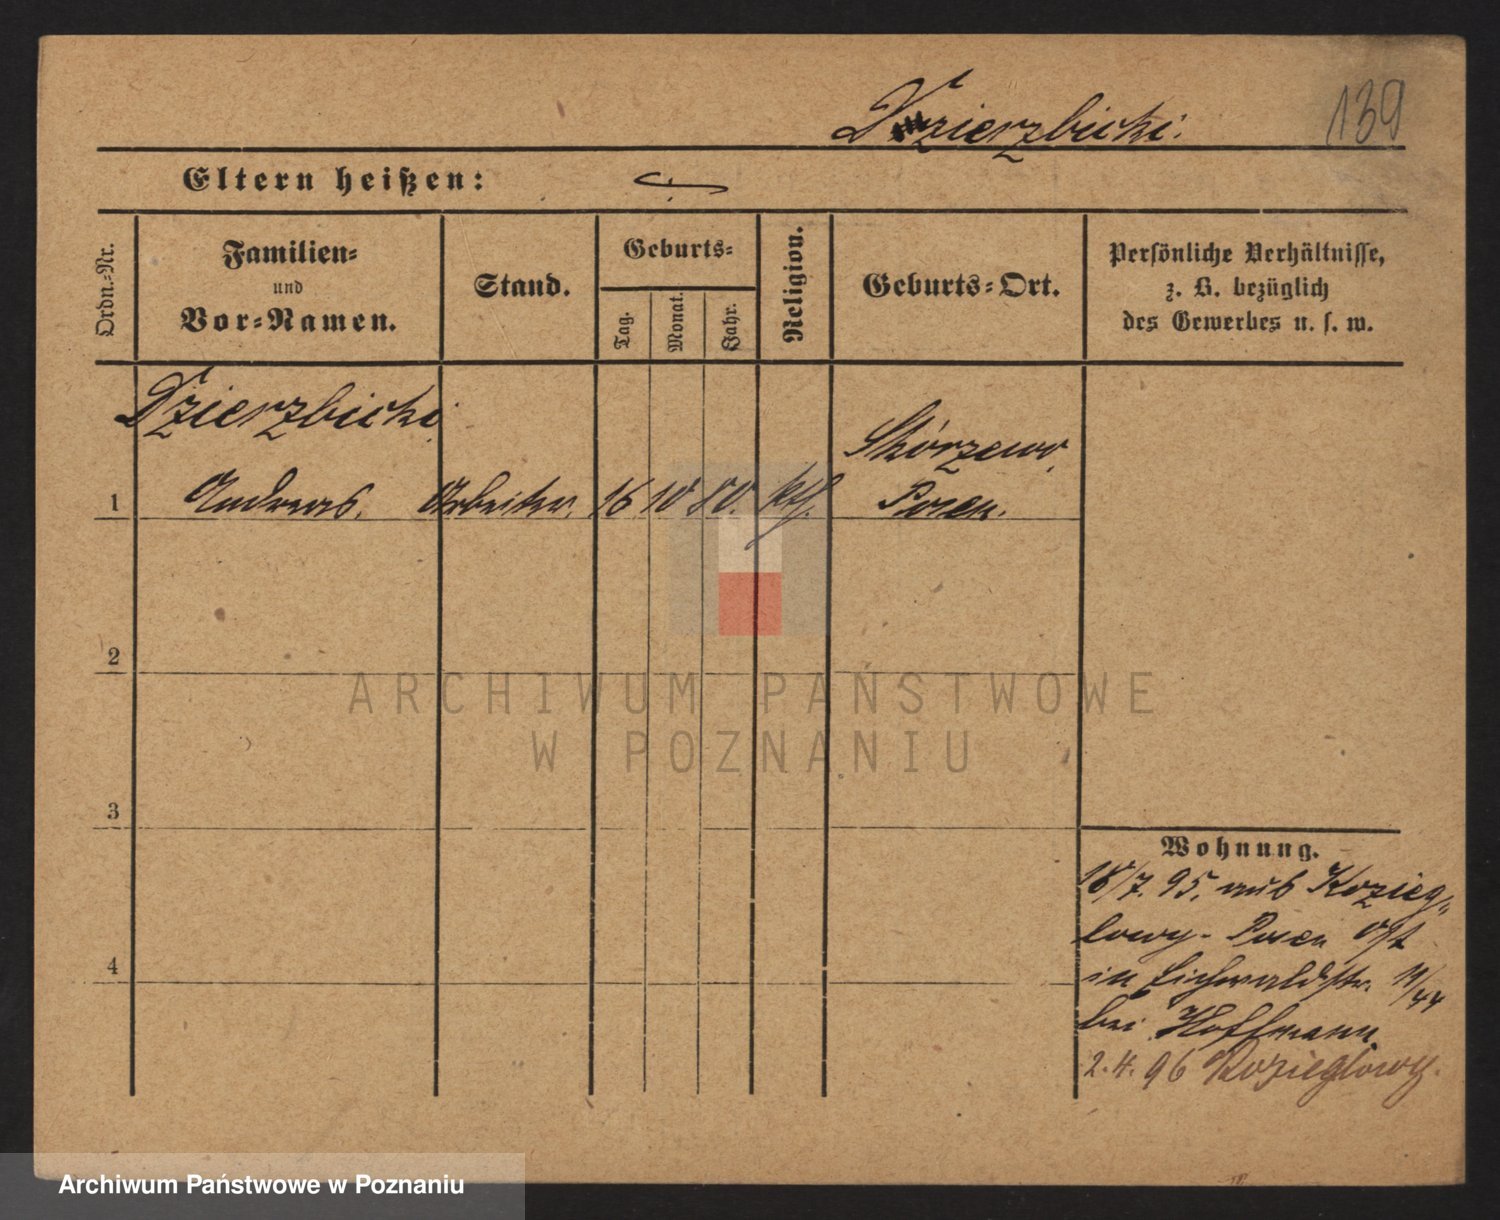 Dzierzbicki.
139
Eltern heißen:
Ordn.-Nr.
Familien-
und
Vor-Namen.
Stand.
Geburts-
Tag.
Monat.
Jahr.
Religion.
Geburts-Ort.
Persönliche Verhältnisse,
z. B. bezüglich
des Gewerbes u. s. w.
Dzierzbicki
Skórzewo,
1 Andreas. Arbeiter. 16 10 80. kth. Posen.
2
ARCHIWUM PAŃSTWOWE
W POZNANIU
3
Wohnung.
18/7. 95. aus Kozieg-
lowy- Posen Ost
4
in Eichwaldstr.
bei Hoffmann
2.4.96 Kozieglowy.
Archiwum Państwowe w Poznaniu